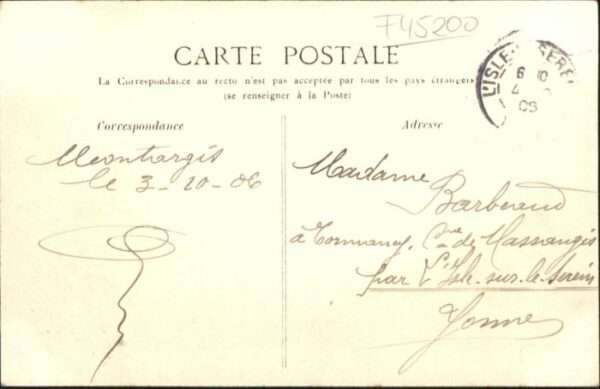 F45200
CARTE POSTALE
La Correspondance au recto n'est pas acceptée par tous les pays étrangers
(se renseigner à la Poste)
Correspondance
Adresse
Montargis
le 3-10-06
Madame
Barberaud
à Tormancy, Cne de Massangis
par L'Isle-sur-le-Serein
Yonne